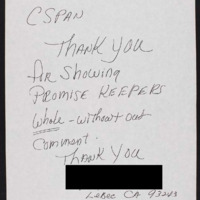 CSPAN
THANK YOU
for Showing
PROMISE KEEPERS
Whole - without out
Comment.
THANK YOU
Lebec CA 93243